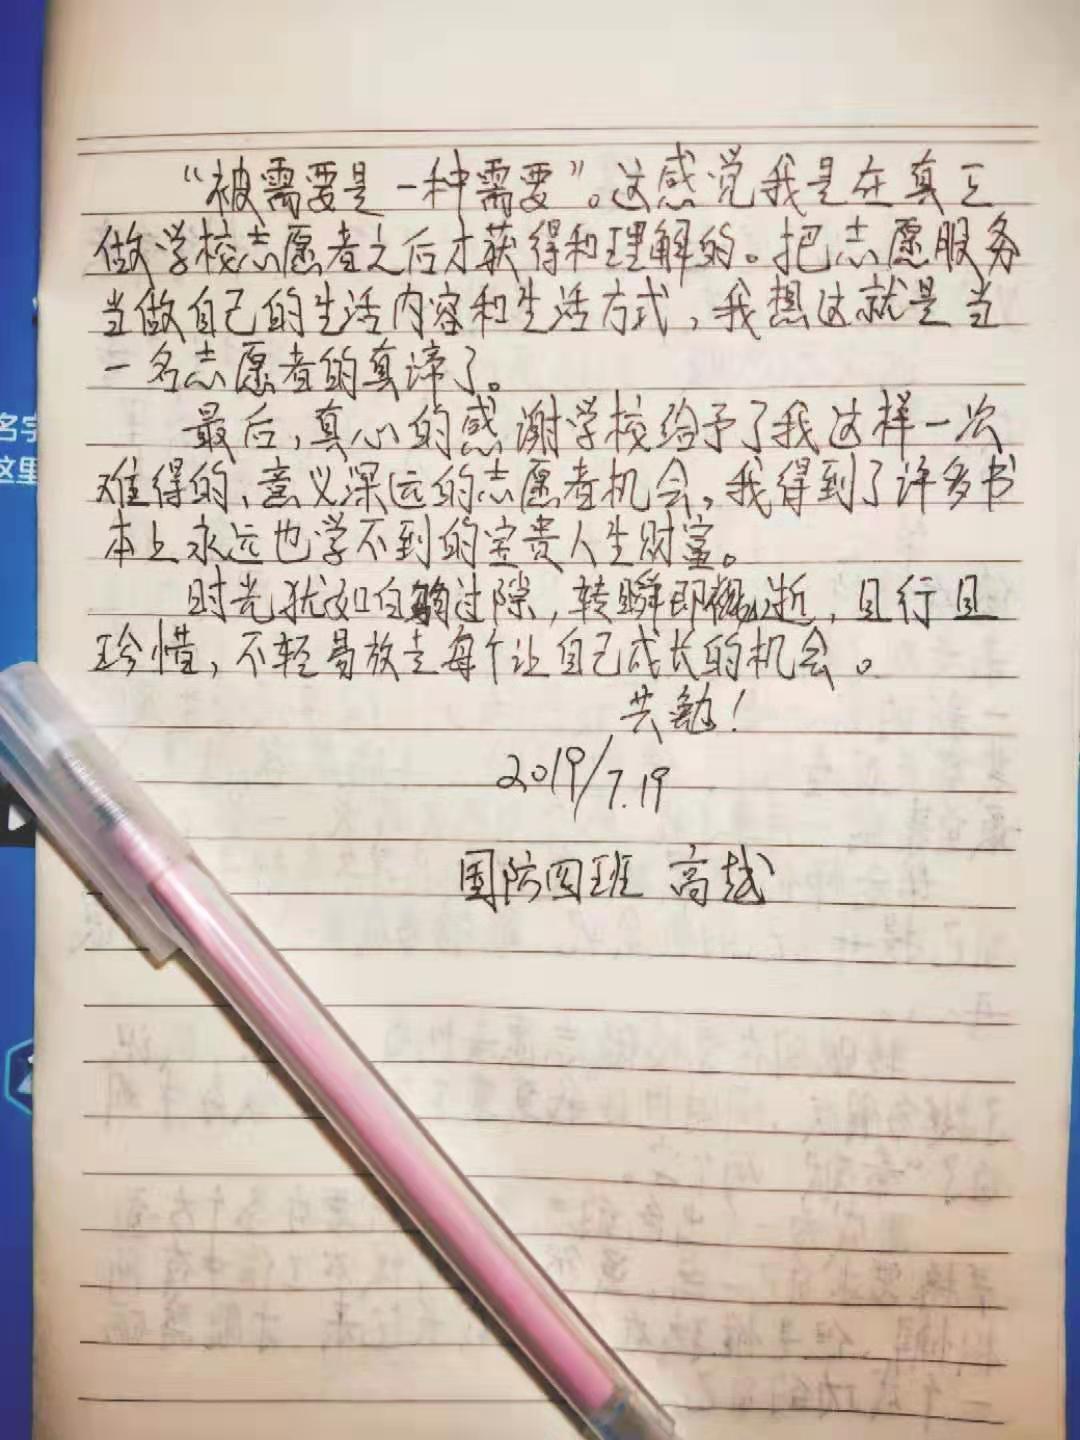 “被需要是一种需要”。这感觉我是在真正
做学校志愿者之后才获得和理解的。把志愿服务
当做自己的生活内容和生活方式，我想这就是当
一名志愿者的真谛了。
最后，真心的感谢学校给予了我这样一次
难得的、意义深远的志愿者机会，我得到了许多书
本上永远也学不到的宝贵人生财富。
时光犹如白驹过隙，转瞬即逝，且行且
珍惜，不轻易放走每个让自己成长的机会。
共勉！
2019/7.19
国防四班 高越
名字
这里